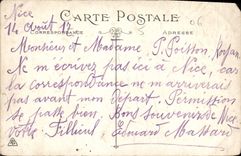 Nice
CARTE POSTALE
14 Août 17
CORRESPONDANCE
ADRESSE
06
Monsieur et Madame P. Poisson
Ne m'écrivez pas ici à Nice, car
la correspondance ne m'arriverait
pas avant mon départ. Permission
se passe bien. Bons souvenirs de
votre Filleul Edouard Massard